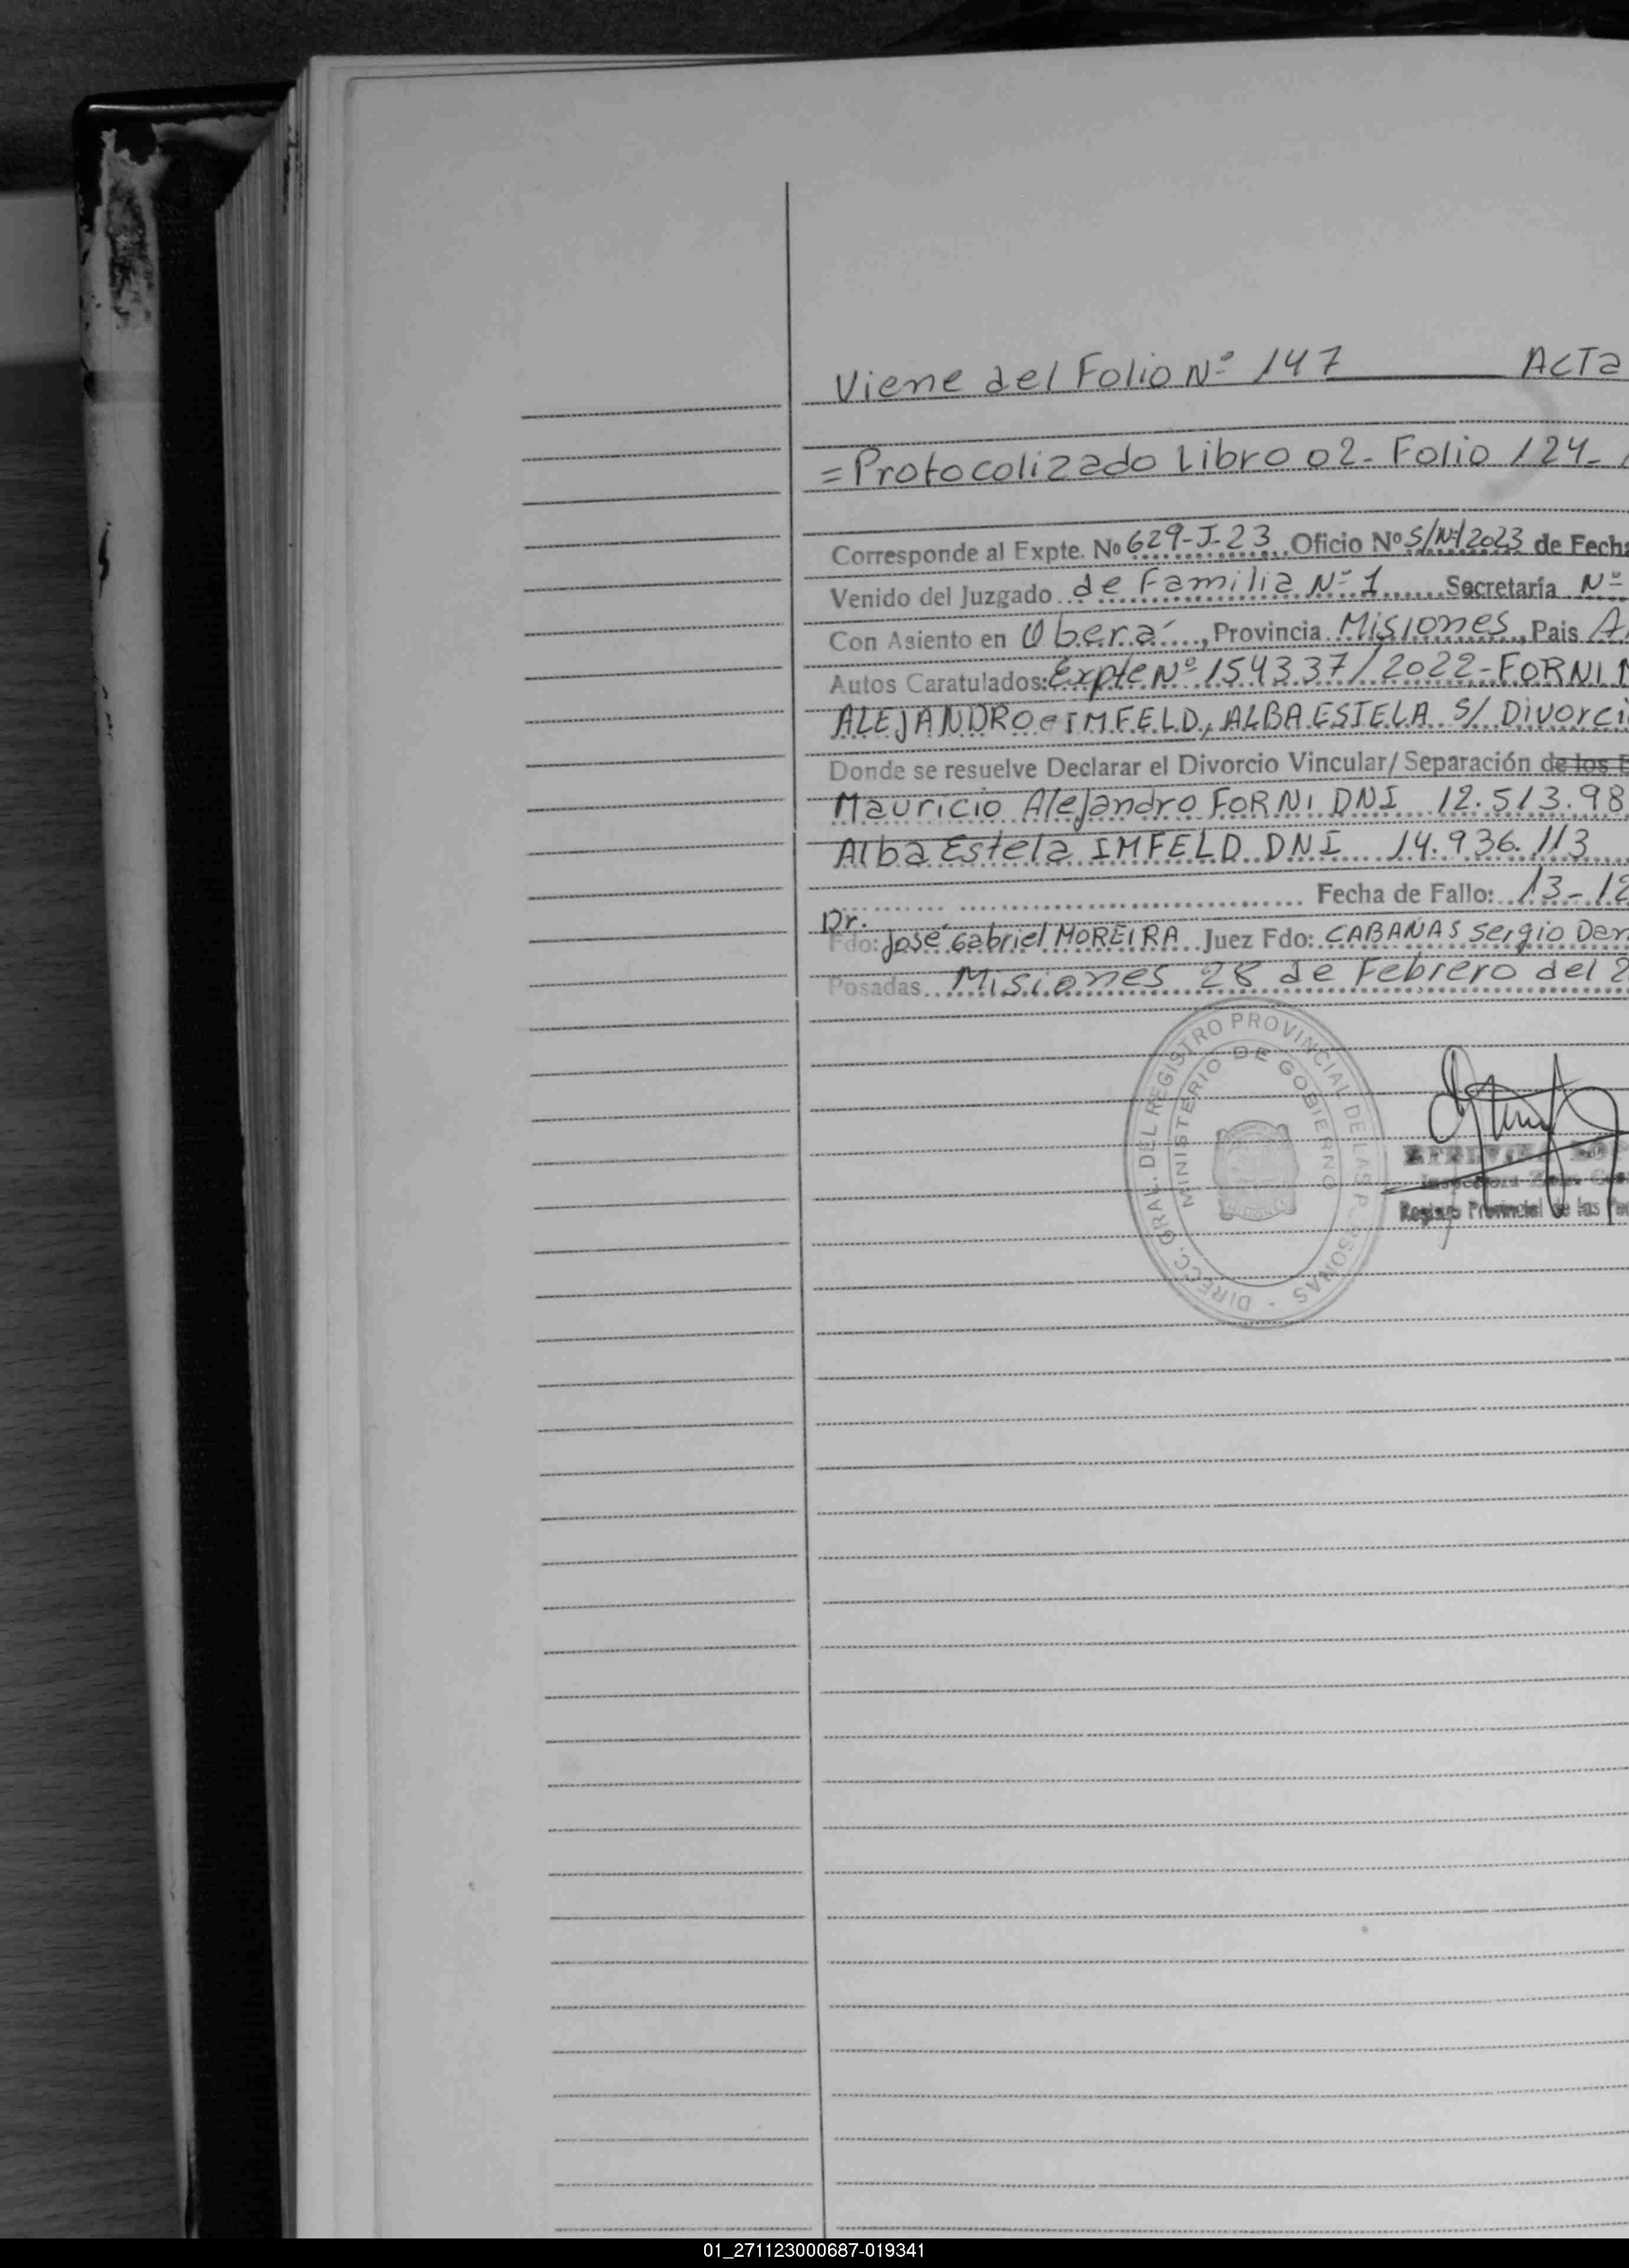 Viene del Folio Nº 147 Acta
=Protocolizado Libro 02- Folio 124-
Corresponde al Expte. No 629-J-23 Oficio Nº S/Nº/2023 de Fecha
Venido del Juzgado de Familia Nº 1 Secretaría Nº
Con Asiento en Oberá, Provincia Misiones, Pais
Autos Caratulados: Expte Nº 154337/2022-FORNI
ALEJANDRO e IMFELD, ALBA ESTELA S/ Divorci
Donde se resuelve Declarar el Divorcio Vincular/ Separación de los
Mauricio Alejandro FORNI DNI 12.513.98
Alba Estela IMFELD DNI 14.936.113
Fecha de Fallo: 13-12
Dr.
Fdo: José Gabriel MOREIRA Juez Fdo: CABAÑAS Sergio
Posadas Misiones 28 de Febrero del 2
DIRECC. GRAL. DEL REGISTRO PROVINCIAL DE LAS PERSONAS -
MINISTERIO DE GOBIERNO
Registro Provincial de las
01_271123000687-019341